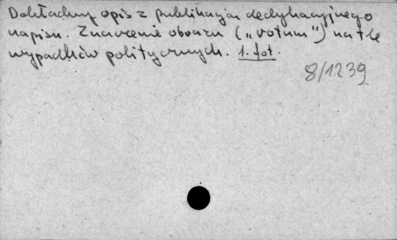 Dokładny opis z publikacją dedykacyjnego
napisu. Znaczenie obrazu („votum") na tle
wypadków politycznych. 1 fot.
8/1239